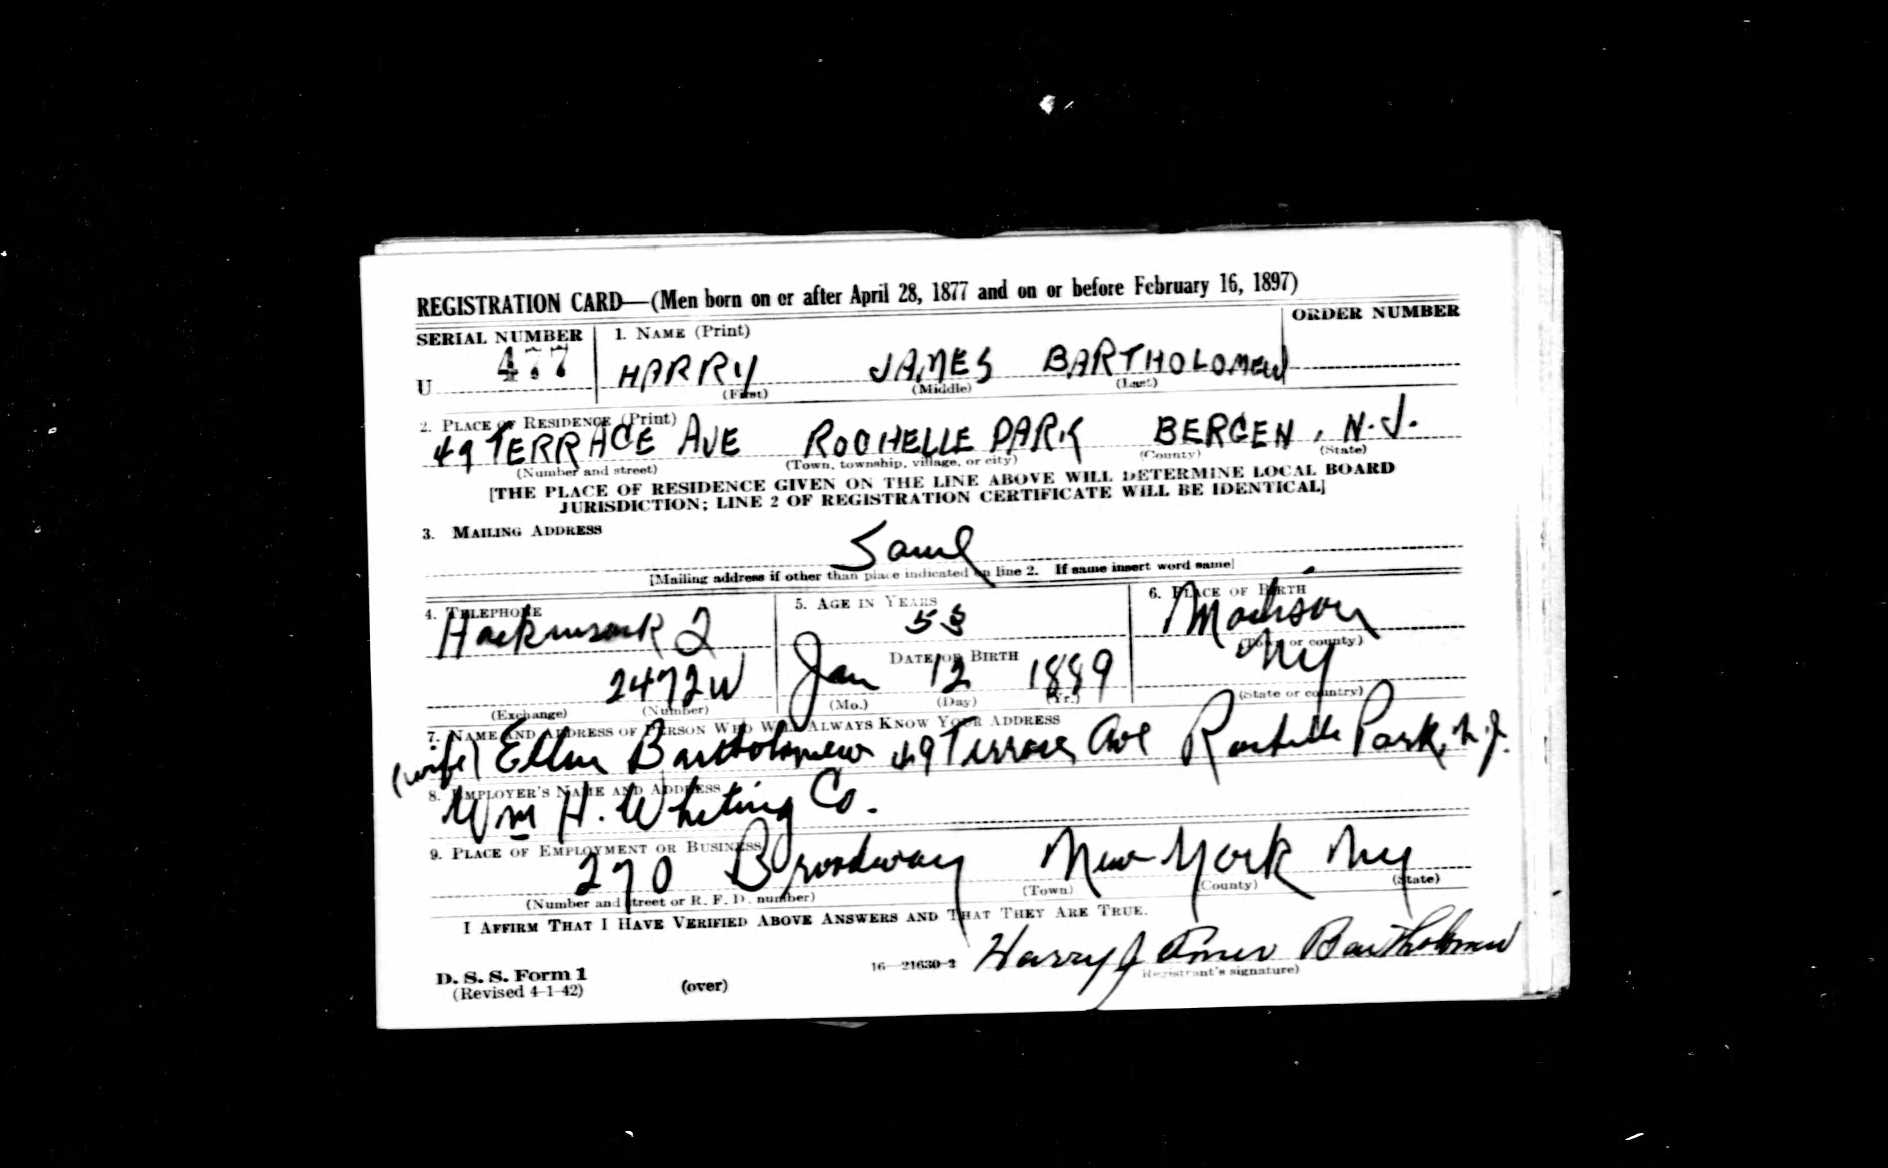 REGISTRATION CARD—(Men born on or after April 28, 1877 and on or before February 16, 1897)
SERIAL NUMBER 1. NAME (Print) ORDER NUMBER
U 477 HARRY JAMES BARTHOLOMEW
(First) (Middle) (Last)
2. PLACE OF RESIDENCE (Print)
49 TERRACE AVE ROCHELLE PARK BERGEN, N.J.
(Number and street) (Town, township, village, or city) (County) (State)
[THE PLACE OF RESIDENCE GIVEN ON THE LINE ABOVE WILL DETERMINE LOCAL BOARD
JURISDICTION; LINE 2 OF REGISTRATION CERTIFICATE WILL BE IDENTICAL]
3. MAILING ADDRESS
Same
[Mailing address if other than place indicated on line 2. If same insert word same]
4. TELEPHONE 5. AGE IN YEARS 6. PLACE OF BIRTH
Hackensack 2 53 Madison
(Town or county)
DATE OF BIRTH
2472W Jan 12 1889 NY
(Exchange) (Number) (Mo.) (Day) (Yr.) (State or country)
7. NAME AND ADDRESS OF PERSON WHO WILL ALWAYS KNOW YOUR ADDRESS
(wife) Ellen Bartholomew 49 Terrace Ave Rochelle Park, N.J.
8. EMPLOYER'S NAME AND ADDRESS
Wm H. Whiting Co.
9. PLACE OF EMPLOYMENT OR BUSINESS
270 Broadway New York NY
(Number and street or R. F. D. number) (Town) (County) (State)
I AFFIRM THAT I HAVE VERIFIED ABOVE ANSWERS AND THAT THEY ARE TRUE.
Harry James Bartholomew
D. S. S. Form 1 16—21630-2 (Registrant's signature)
(Revised 4-1-42) (over)